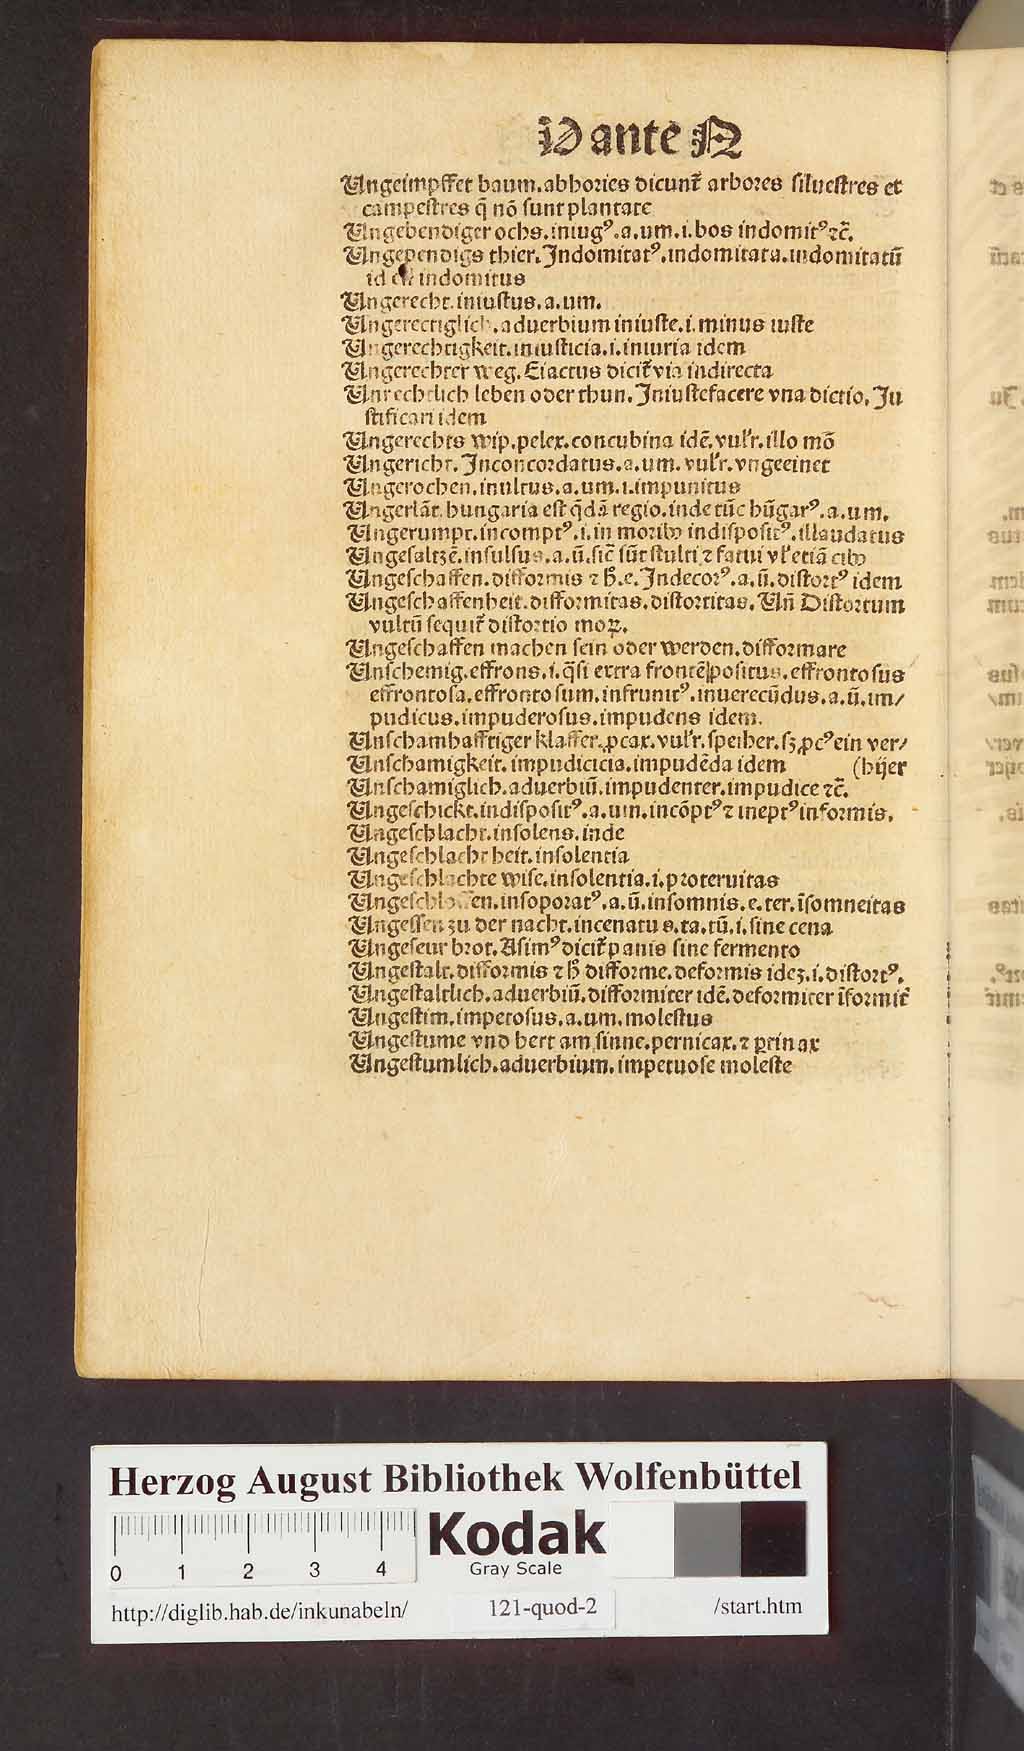 V ante N
Ungeimpffet baum. abhories dicunt᷑ arbores siluestres et
campestres q̃ nō sunt plantate
Ungebendiger ochs. iniugꝰ. a. um. i. bos indomitꝰ ꝛc̃.
Ungependigs thier. Indomitatꝰ. indomitata. indomitatū
id indomitus
Ungerecht. iniustus. a. um.
Ungerectiglich. aduerbium iniuste. i. minus iuste
Ungerechtigkeit. iniusticia. i. iniuria idem
Ungerechter weg. Eiactus dicit᷑ via indirecta
Unrechtlich leben oder thun. Iniustefacere vna dictio. Iu
stificari idem
Ungerechts wip. pelex. concubina idē. vul'r. illo mō
Ungericht. Inconcordatus. a. um. vul'r. vngeeinet
Ungerochen. inultus. a. um. i. impunitus
Ungerlāt. hungaria est q̄dā regio. inde tūc hūgarꝰ. a. um.
Ungerumpt. incomptꝰ. i. in moribꝫ indispositꝰ. illaudatus
Ungesaltzē. insulsus. a. ū. sic̄ sūt stulti ꝛ fatui vl' etiā cibꝫ
Ungeschaffen. difformis ꝛ h̄. e. Indecorꝰ. a. ū. distortꝰ idem
Ungeschaffenheit. difformitas. distortitas. Uñ Distortum
vultū sequit᷑ distortio moꝝ.
Ungeschaffen machen sein oder werden. difformare
Unschemig. effrons. i. q̄si extra frontē positus. effrontosus
effrontosa. effrontosum. infrunitꝰ. inuerecūdus. a. ū. im/
pudicus. impuderosus. impudens idem.
Unschamhafftiger klaffer. ꝓcax. vul'r. speiher. sꝫ ꝓcꝰ ein ver/
Unschamigkeit. impudicicia. impudēda idem (hijer
Unschamiglich. aduerbiū. impudenter. impudice ꝛc̃.
Ungeschickt. indispositꝰ. a. um. incōptꝰ ꝛ ineptꝰ informis.
Ungeschlacht. insolens. inde
Ungeschlachtheit. insolentia
Ungeschlachte wise. insolentia. i. proteruitas
Ungeschloffen. insoporatꝰ. a. ū. insomnis. e. ter. īsomneitas
Ungessen zu der nacht. incenatus. ta. tū. i. sine cena
Ungeseur brot. Asimꝰ dicit᷑ panis sine fermento
Ungestalt. difformis ꝛ h̄ difforme. deformis ideꝫ. i. distortꝰ.
Ungestaltlich. aduerbiū. difformiter idē. deformiter īformit᷑
Ungestim. impetosus. a. um. molestus
Ungestume vnd hert am sinne. pernicax. ꝛ ꝑtinax
Ungestumlich. aduerbium. impetuose moleste
Herzog August Bibliothek Wolfenbüttel
Kodak
Gray Scale
0 1 2 3 4
http://diglib.hab.de/inkunabeln/ 121-quod-2 /start.htm